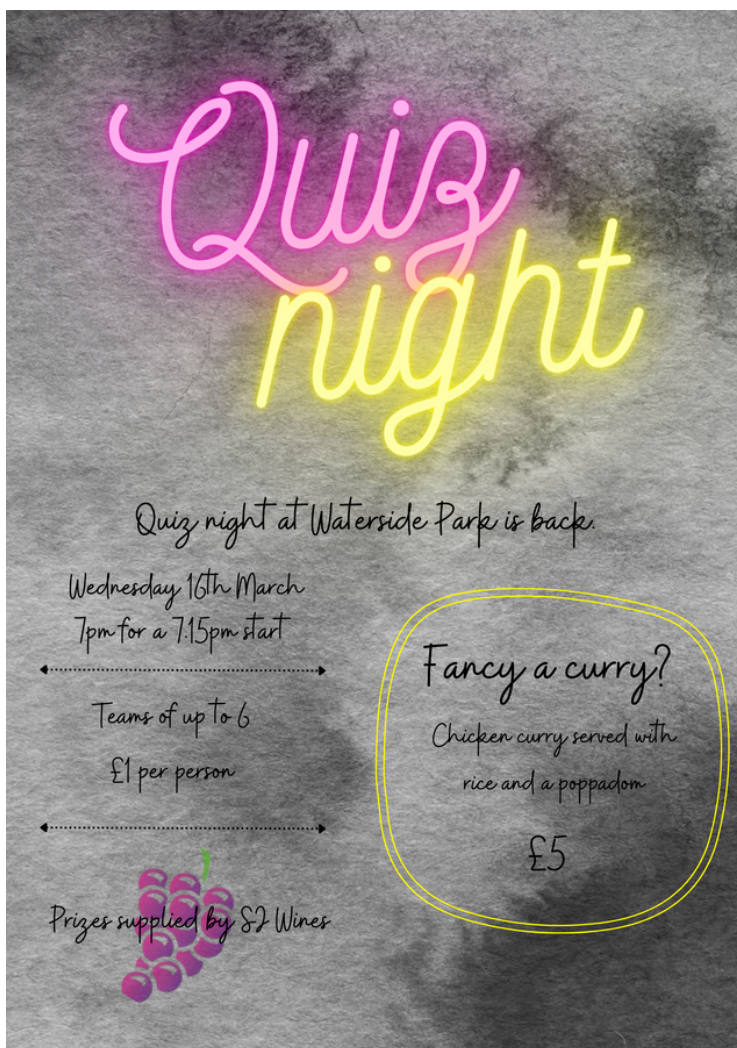 Quiz
night
Quiz night at Waterside Park is back.
Wednesday 16th March
7pm for a 7.15pm start
Teams of up to 6
£1 per person
Prizes supplied by SJ Wines
Fancy a curry?
Chicken curry served with
rice and a poppadom
£5